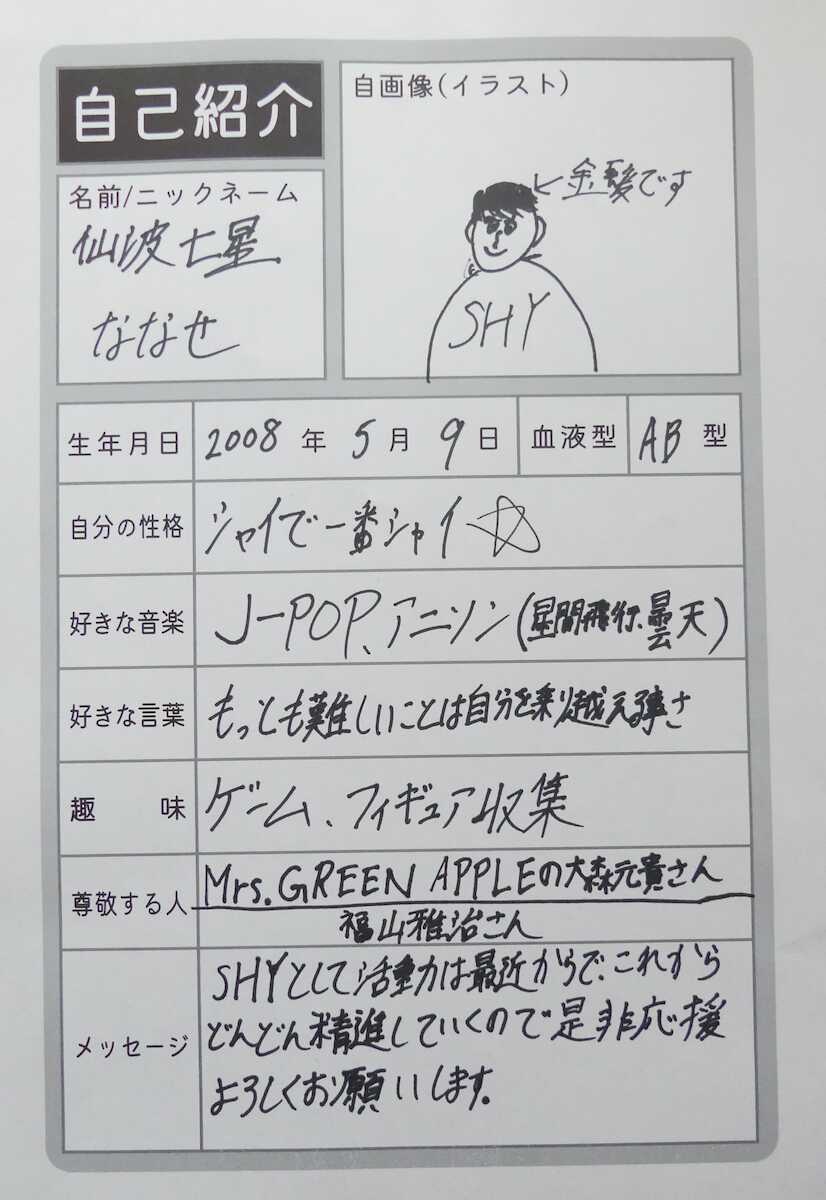 自己紹介
自画像(イラスト)
←金髪です
SHY
名前/ニックネーム
仙波七星
ななせ
生年月日 2008年5月9日 血液型 AB型
自分の性格 シャイで一番シャイ☆
好きな音楽 J-POP、アニソン(星間飛行、曇天)
好きな言葉 もっとも難しいことは自分を乗り越える事さ
趣味 ゲーム、フィギュア収集
尊敬する人 Mrs.GREEN APPLEの大森元貴さん
福山雅治さん
メッセージ SHYとして活動は最近からで、これから
どんどん精進していくので是非応援
よろしくお願いします。